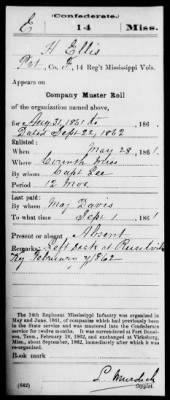 (Confederate.)
E 14 Miss.
H Ellis
Pvt, Co. F, 14 Reg't Mississippi Vols.
Appears on
Company Muster Roll
of the organization named above,
for Aug 31, 1861 to, 186
Dated Sept 22, 1862
Enlisted:
When May 28, 1861.
Where Corinth Miss
By whom Capt Lee
Period 12 mos.
Last paid:
By whom Maj Davis
To what time Sept 1, 1861
Present or absent Absent
Remarks: Left sick at Russelville
Ky February 7 1862
The 14th Regiment Mississippi Infantry was organized in
May and June, 1861, of companies which had previously been
in the State service and mustered into the Confederate service
for twelve months. It was surrendered at Fort Donelson,
Tenn., February 16, 1862, and exchanged at Vicksburg,
Miss., about September, 1862, immediately after which it was
reorganized.
Book mark
(642)
L. Murdock
Copyist.